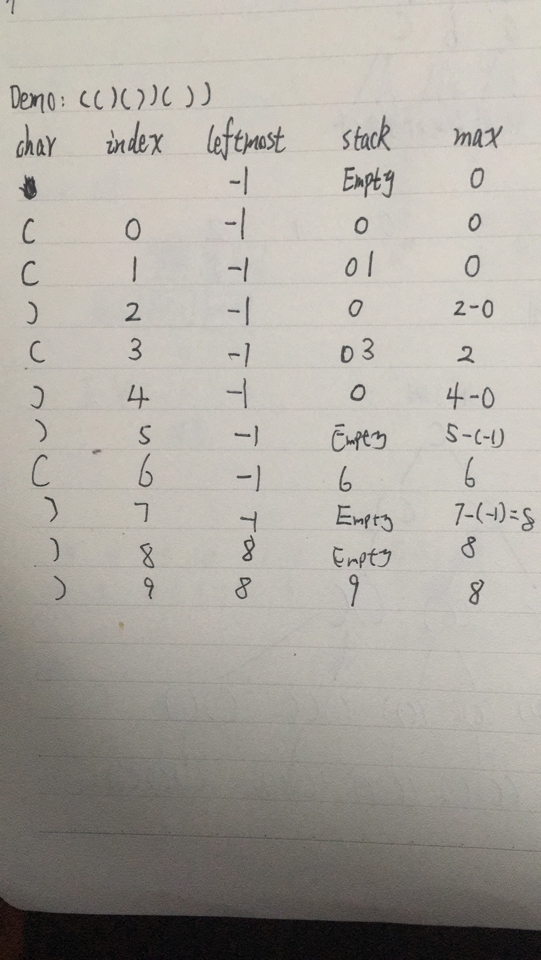 Demo: (()())())
char index leftmost stack max
-1 Empty 0
( 0 -1 0 0
( 1 -1 01 0
) 2 -1 0 2-0
( 3 -1 03 2
) 4 -1 0 4-0
) 5 -1 Empty 5-(-1)
( 6 -1 6 6
) 7 -1 Empty 7-(-1)=8
) 8 8 Empty 8
) 9 8 9 8